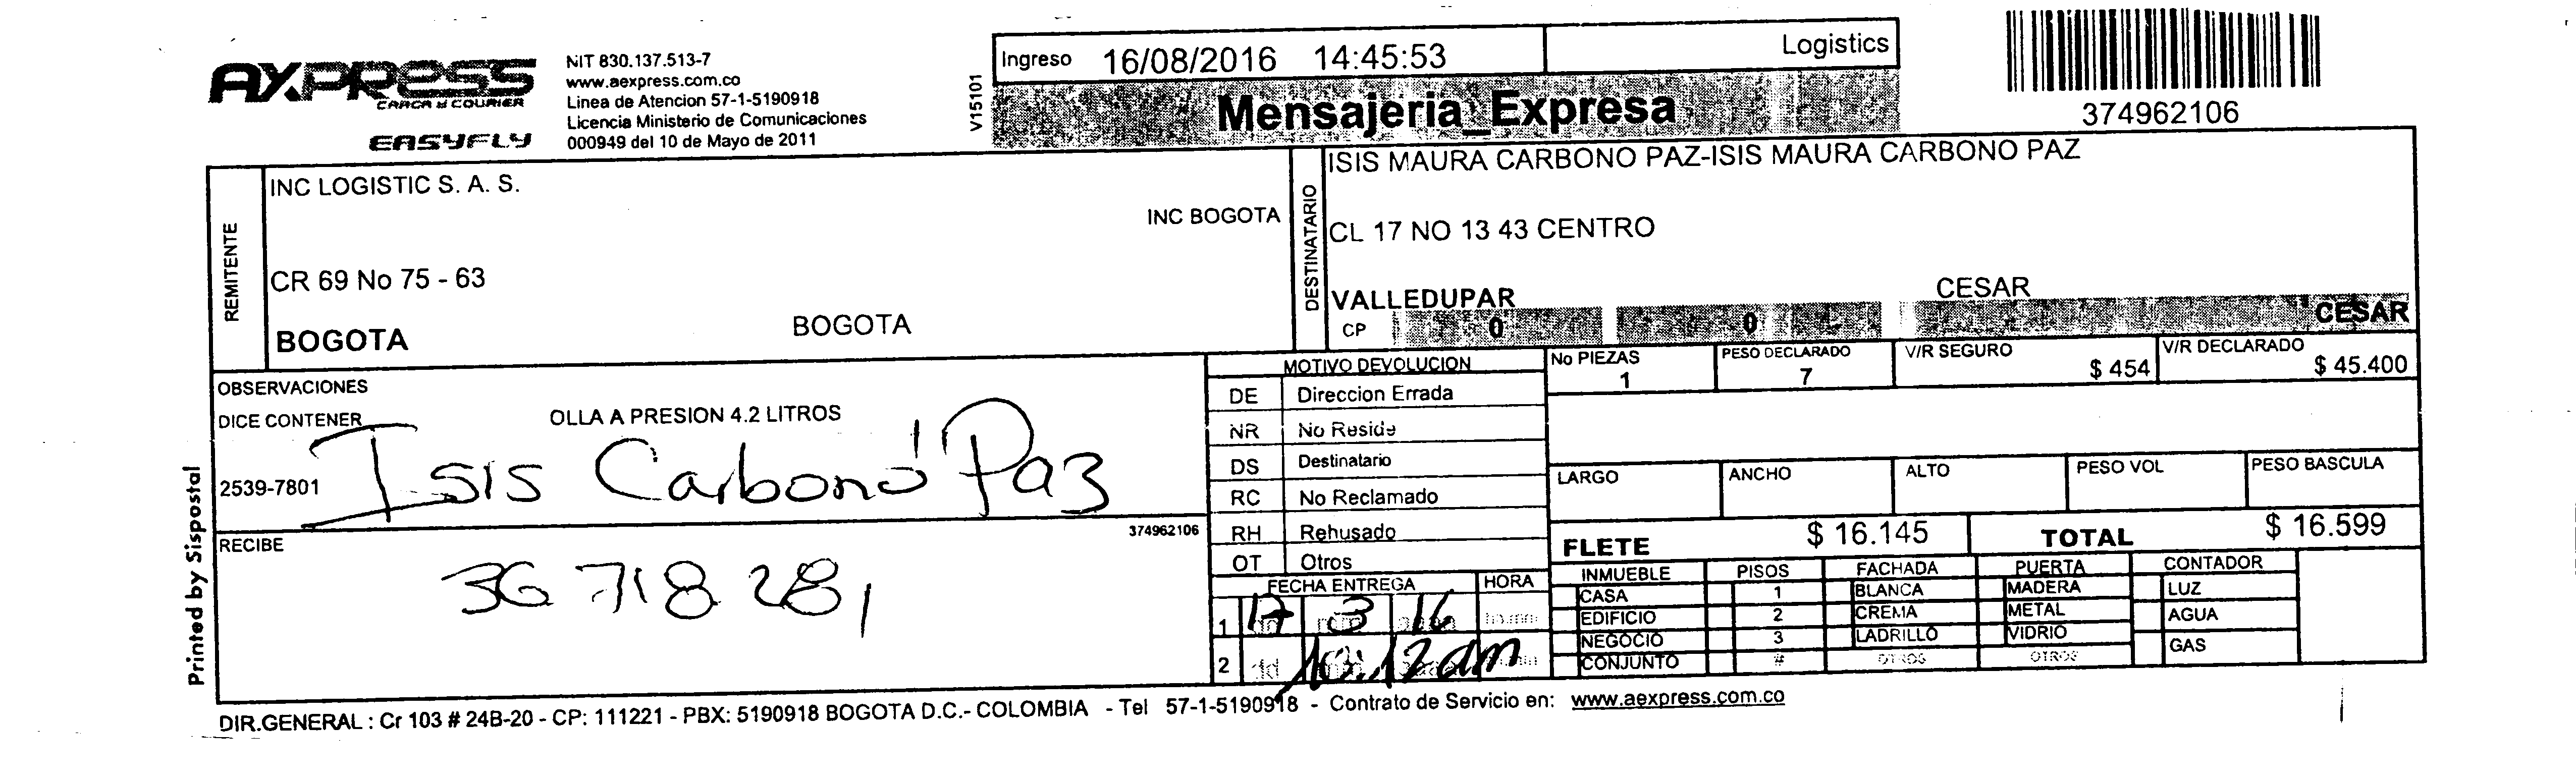 AXPRESS
CARGA y COURIER
EASYFLY
NIT 830.137.513-7
www.aexpress.com.co
Linea de Atencion 57-1-5190918
Licencia Ministerio de Comunicaciones
000949 del 10 de Mayo de 2011
V15101
Ingreso 16/08/2016 14:45:53 Logistics
Mensajeria_Expresa
374962106
REMITENTE
INC LOGISTIC S. A. S.
INC BOGOTA
CR 69 No 75 - 63
BOGOTA BOGOTA
DESTINATARIO
ISIS MAURA CARBONO PAZ-ISIS MAURA CARBONO PAZ
CL 17 NO 13 43 CENTRO
VALLEDUPAR CESAR
CP 0 0 CESAR
OBSERVACIONES
DICE CONTENER OLLA A PRESION 4.2 LITROS
Isis Carbonó Paz
2539-7801
374962106
RECIBE
36 718 281
MOTIVO DEVOLUCION
DE Direccion Errada
NR No Reside
DS Destinatario
RC No Reclamado
RH Rehusado
OT Otros
FECHA ENTREGA HORA
1 17 3 16
2 dd 10:12am
No PIEZAS PESO DECLARADO V/R SEGURO V/R DECLARADO
1 7 $ 454 $ 45.400
LARGO ANCHO ALTO PESO VOL PESO BASCULA
FLETE $ 16.145 TOTAL $ 16.599
INMUEBLE PISOS FACHADA PUERTA CONTADOR
CASA 1 BLANCA MADERA LUZ
EDIFICIO 2 CREMA METAL AGUA
NEGOCIO 3 LADRILLO VIDRIO GAS
CONJUNTO # OTROS OTROS
Printed by Sispostal
DIR.GENERAL : Cr 103 # 24B-20 - CP: 111221 - PBX: 5190918 BOGOTA D.C.- COLOMBIA - Tel 57-1-5190918 - Contrato de Servicio en: www.aexpress.com.co